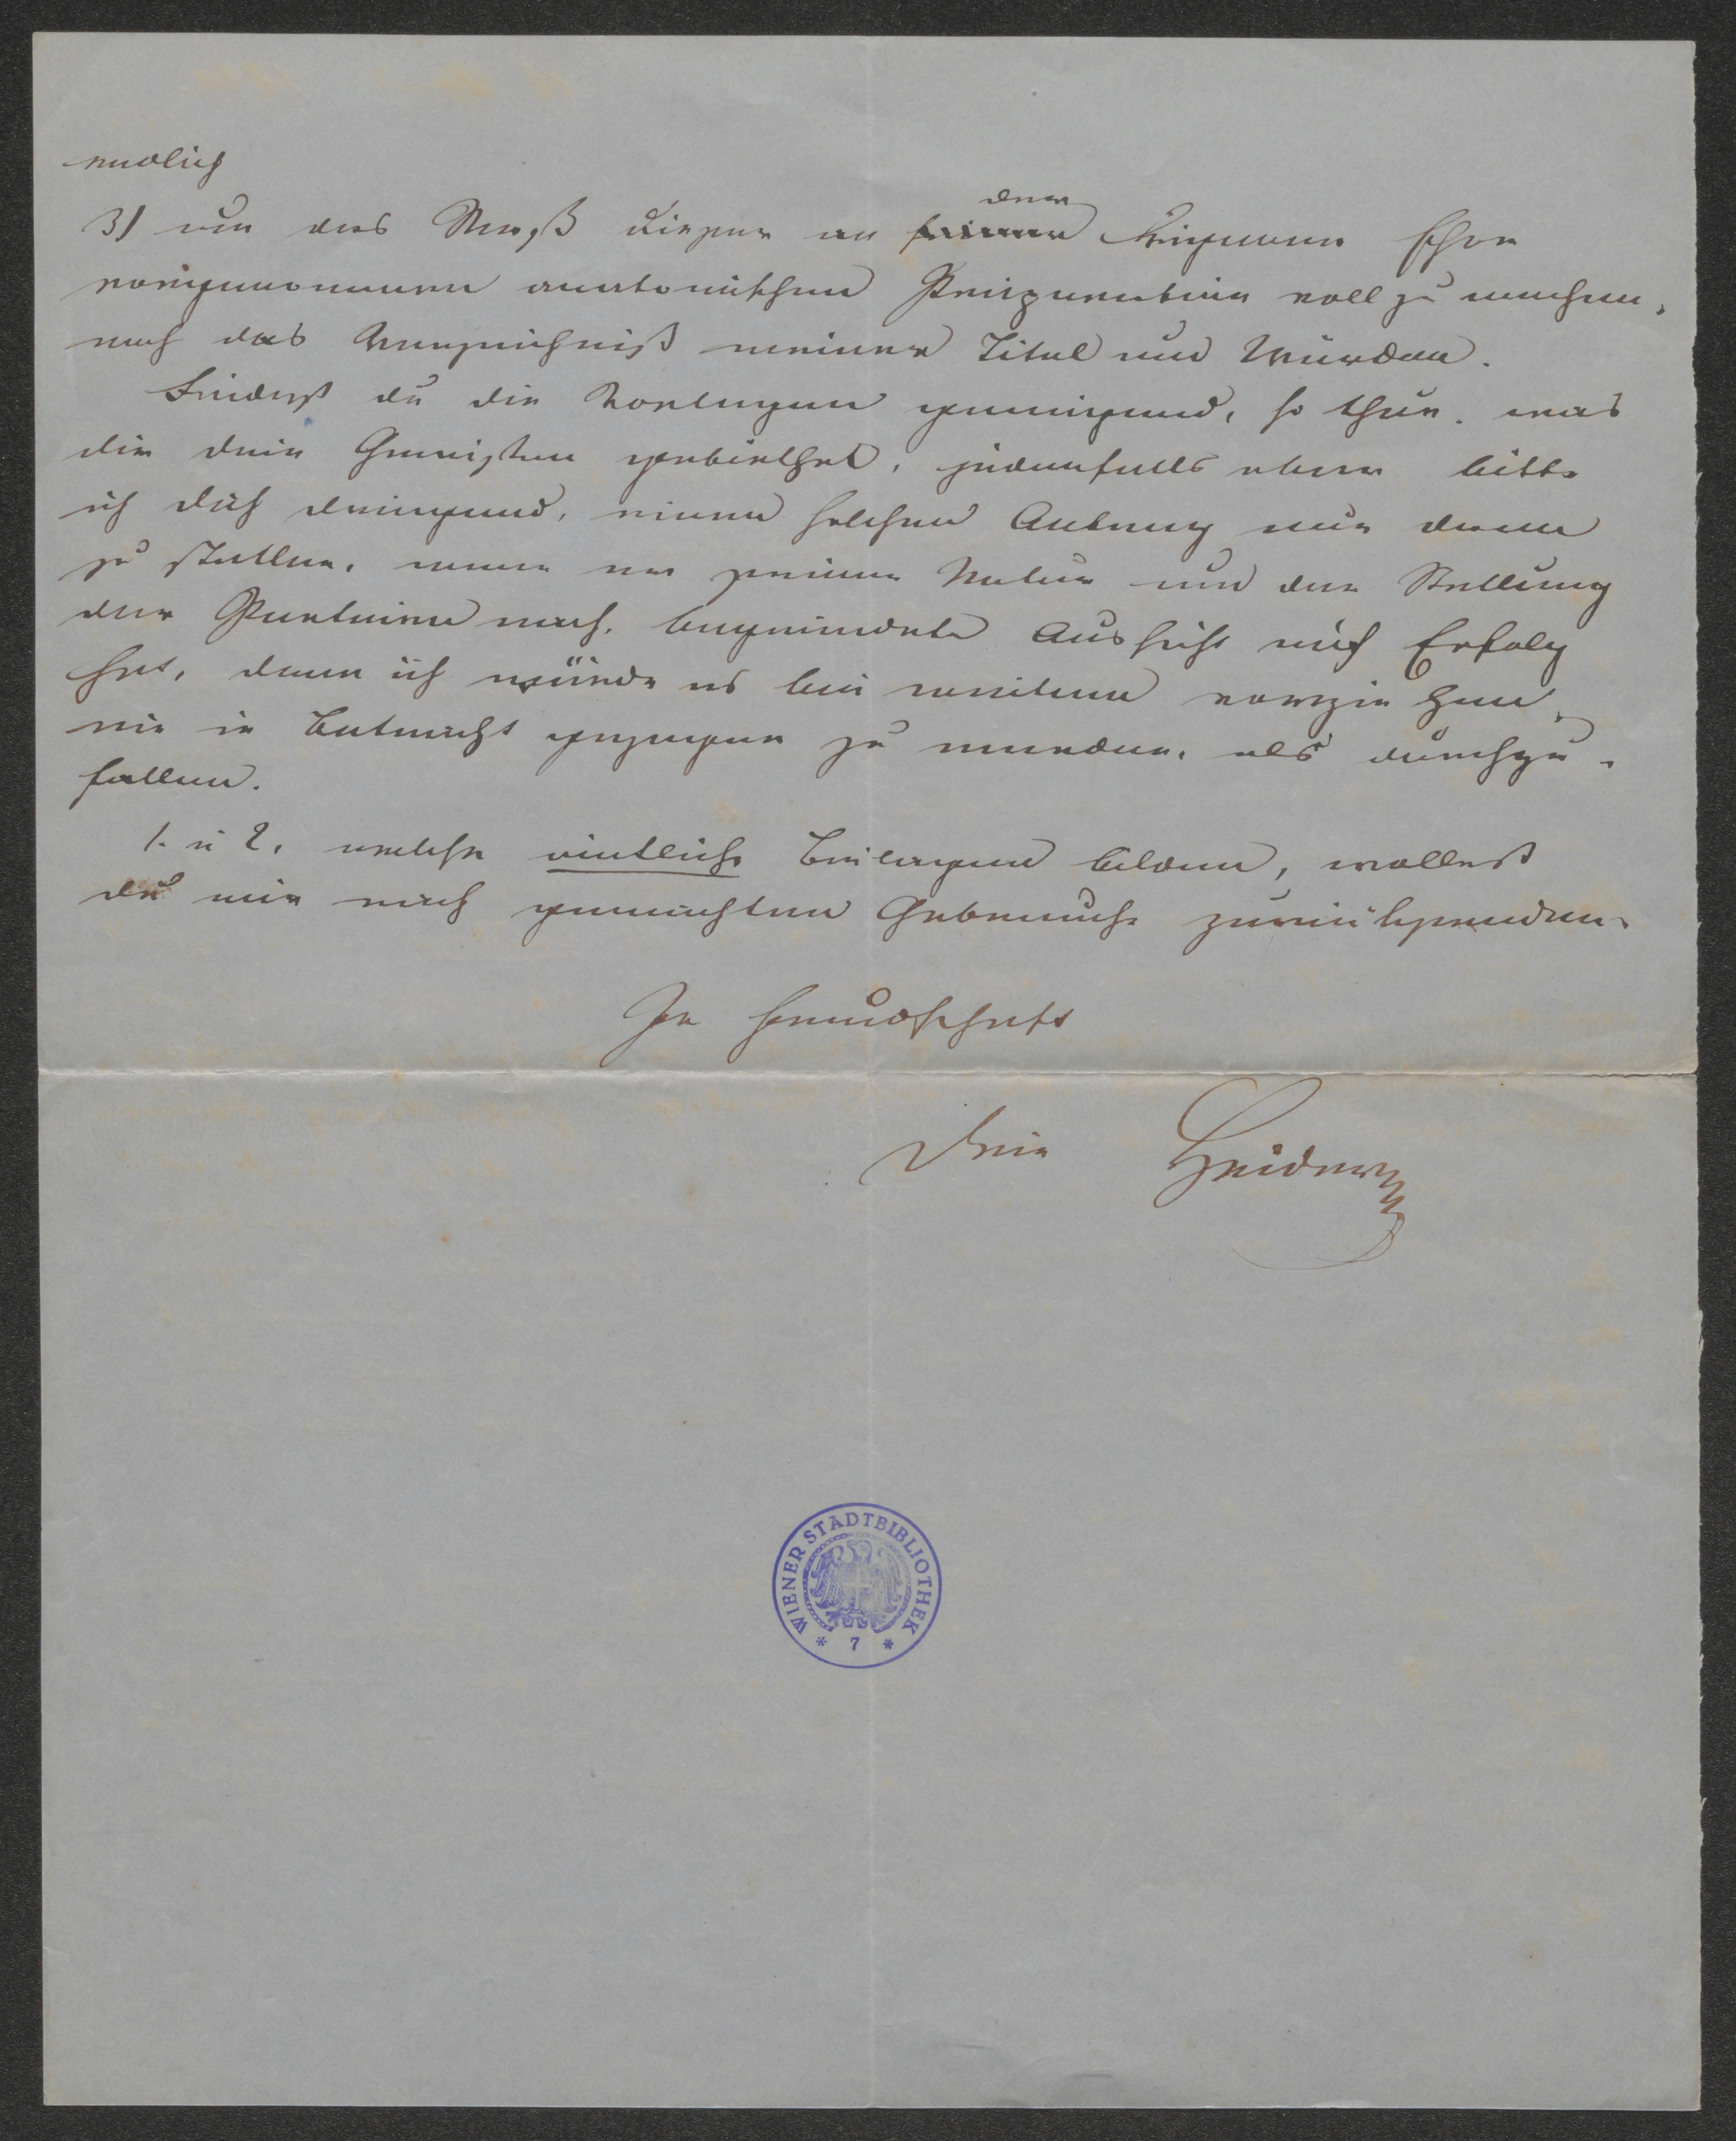 endlich
3) um das Maaß dieser an der Leichnam schon
vorgenommenen anatomischen Präparation voll zu machen,
noch das Verzeichniß meiner Titel und Würden.
Findest du die Vorlagen genügend, so thue, was
dir dein Gewissen gebiethet, jedenfalls aber bitte
ich dich dringend, einen solchen Antrag nur dann
zu stellen, wenn er seiner Natur und der Stellung
der Partheien nach, begründete Aussicht auf Erfolg
hat, denn ich würde es bei weitem vorziehen,
nie in Betracht gezogen zu werden, als durchzu-
fallen.
1. u 2, welche Beilagen bilden, wollest
du mir nach gemachtem Gebrauche zurücksenden.
In Freundschaft
Dein Heider
WIENER STADTBIBLIOTHEK
* 7 *